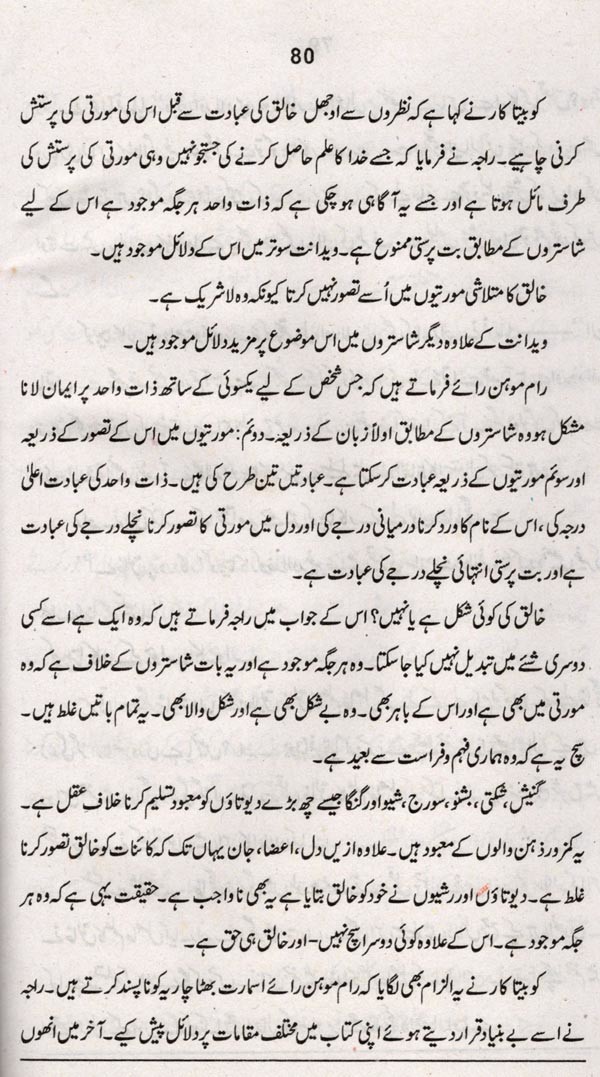 80
کوبیتا کار نے کہا ہے کہ نظروں سے اوجھل خالق کی عبادت سے قبل اس کی مورتی کی پرستش
کرنی چاہیے۔ راجہ نے فرمایا کہ جسے خدا کا علم حاصل کرنے کی جستجو نہیں وہی مورتی کی پرستش کی
طرف مائل ہوتا ہے اور جسے یہ آگاہی ہو چکی ہے کہ ذات واحد ہر جگہ موجود ہے اس کے لیے
شاستروں کے مطابق بت پرستی ممنوع ہے۔ ویدانت سوتر میں اس کے دلائل موجود ہیں۔
خالق کا متلاشی مورتیوں میں اُسے تصور نہیں کرتا کیونکہ وہ لا شریک ہے۔
ویدانت کے علاوہ دیگر شاستروں میں اس موضوع پر مزید دلائل موجود ہیں۔
رام موہن رائے فرماتے ہیں کہ جس شخص کے لیے یکسوئی کے ساتھ ذات واحد پر ایمان لانا
مشکل ہو وہ شاستروں کے مطابق اولاً زبان کے ذریعہ۔ دوئم: مورتیوں میں اس کے تصور کے ذریعہ
اور سوئم مورتیوں کے ذریعہ عبادت کرسکتا ہے۔ عبادتیں تین طرح کی ہیں۔ ذات واحد کی عبادت اعلیٰ
درجہ کی، اس کے نام کا ورد کرنا درمیانی درجے کی اور دل میں مورتی کا تصور کرنا نچلے درجے کی عبادت
ہے اور بت پرستی انتہائی نچلے درجے کی عبادت ہے۔
خالق کی کوئی شکل ہے یا نہیں؟ اس کے جواب میں راجہ فرماتے ہیں کہ وہ ایک ہے اسے کسی
دوسری شئے میں تبدیل نہیں کیا جاسکتا۔ وہ ہر جگہ موجود ہے اور یہ بات شاستروں کے خلاف ہے کہ وہ
مورتی میں بھی ہے اور اس کے باہر بھی۔ وہ بے شکل بھی ہے اور شکل والا بھی۔ یہ تمام باتیں غلط ہیں۔
سچ یہ ہے کہ وہ ہماری فہم و فراست سے بعید ہے۔
گنیش، شکتی، بشنو، سورج، شیو اور گنگا جیسے چھ بڑے دیوتاؤں کو معبود تسلیم کرنا خلاف عقل ہے۔
یہ کمزور ذہن والوں کے معبود ہیں۔ علاوہ ازیں دل، اعضا، جان یہاں تک کہ کائنات کو خالق تصور کرنا
غلط ہے۔ دیوتاؤں اور رشیوں نے خود کو خالق بتایا ہے یہ بھی ناواجب ہے۔ حقیقت یہی ہے کہ وہ ہر
جگہ موجود ہے۔ اس کے علاوہ کوئی دوسرا سچ نہیں - اور خالق ہی حق ہے۔
کوبیتا کار نے یہ الزام بھی لگایا کہ رام موہن رائے اسمارت بھٹا چاریہ کو ناپسند کرتے ہیں۔ راجہ
نے اسے بے بنیاد قرار دیتے ہوئے اپنی کتاب میں مختلف مقامات پر دلائل پیش کیے۔ آخر میں انھوں